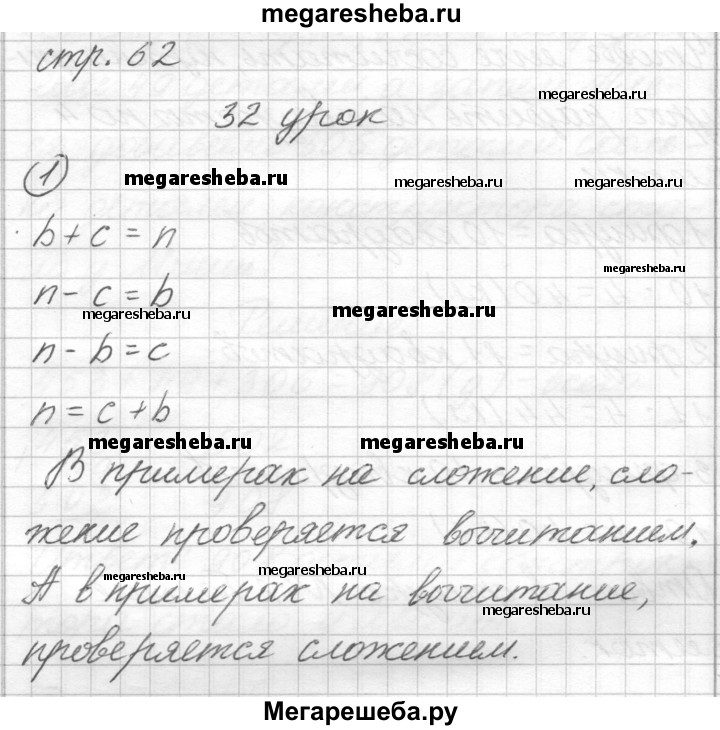 megaresheba.ru
стр. 62
megaresheba.ru
32 урок
1 megaresheba.ru megaresheba.ru megaresheba.ru
b + c = n
megaresheba.ru
n - c = b
megaresheba.ru megaresheba.ru
n - b = c
n = c + b
megaresheba.ru megaresheba.ru
В примерах на сложение, сло-
жение проверяется вычитанием.
megaresheba.ru megaresheba.ru
А в примерах на вычитание,
megaresheba.ru
проверяется сложением.
Мегарешеба.ру